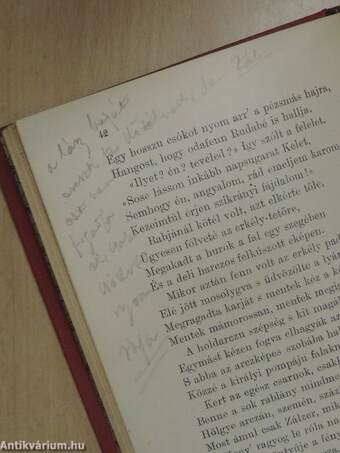 42
a lány haját
Egy hosszu csókot nyom arr' a pézsmás hajra,
Hangost, hogy odafenn Rudabé is hallja.
»Ilyet? én? teveled?« Igy szólt a felelet,
»Sose lásson inkább napsugarat Kelet,
Semhogy én, angyalom, rád emeljem karom
Kezeimtűl érjen szikrányi fájdalom!«
Baljánál kötél volt, azt elkérte tőle,
Ügyesen fölveté az erkély-tetőre,
Megakadt a hurok a fal egy szegében
És a deli harezos felkúszott éképen.
Mikor aztán fenn volt az erkély pad
Elé jött mosolygva s üdvözölte a lyán
Megragadta karját s mentek kéz a k
Mentek mámorossan, mentek megitt
A holdarczu szépség s kit magát
Egymást kézen fogva elhagyák az
S abba az arczképes szobába hal
Közzé a királyi pompáju falakn
Kert az egész csarnok, csak
Benne a sok rablány mindme
Hölgye arczán, szemén, száz
Most ámul csak Zálzer, mi
Hogy ragyog le róla na
fénye a fény
Antikvárium.hu